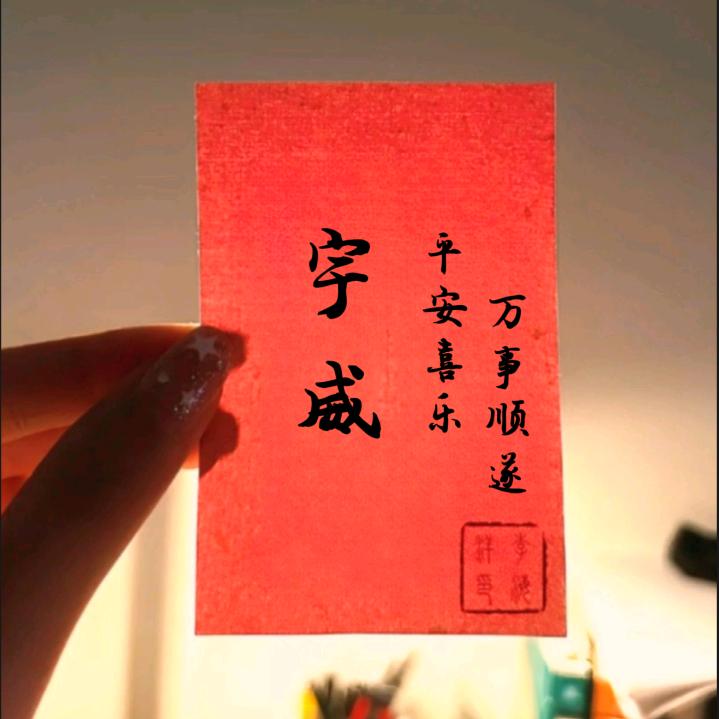 万事顺遂
平安喜乐
宇威